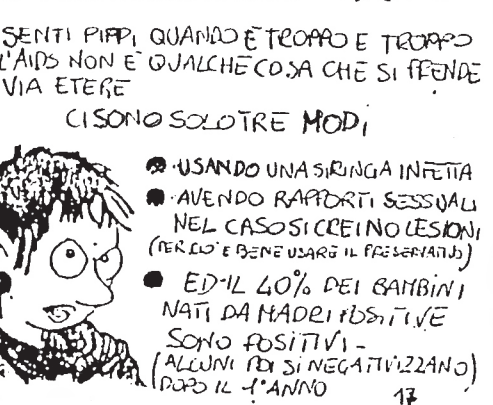 SENTI PIPPI, QUANDO È TROPPO E TROPPO
L'AIDS NON E' QUALCHECOSA CHE SI PRENDE
VIA ETERE
CI SONO SOLO TRE MODI
• USANDO UNA SIRINGA INFETTA
• AVENDO RAPPORTI SESSUALI
NEL CASO SI CREINO LESIONI
(PER CIO' E BENE USARE IL PRESERVATIVO)
• ED IL 40% DEI BAMBINI
NATI DA MADRI POSITIVE
SONO POSITIVI -
(ALCUNI POI SI NEGATIVIZZANO)
DOPO IL 1° ANNO
17